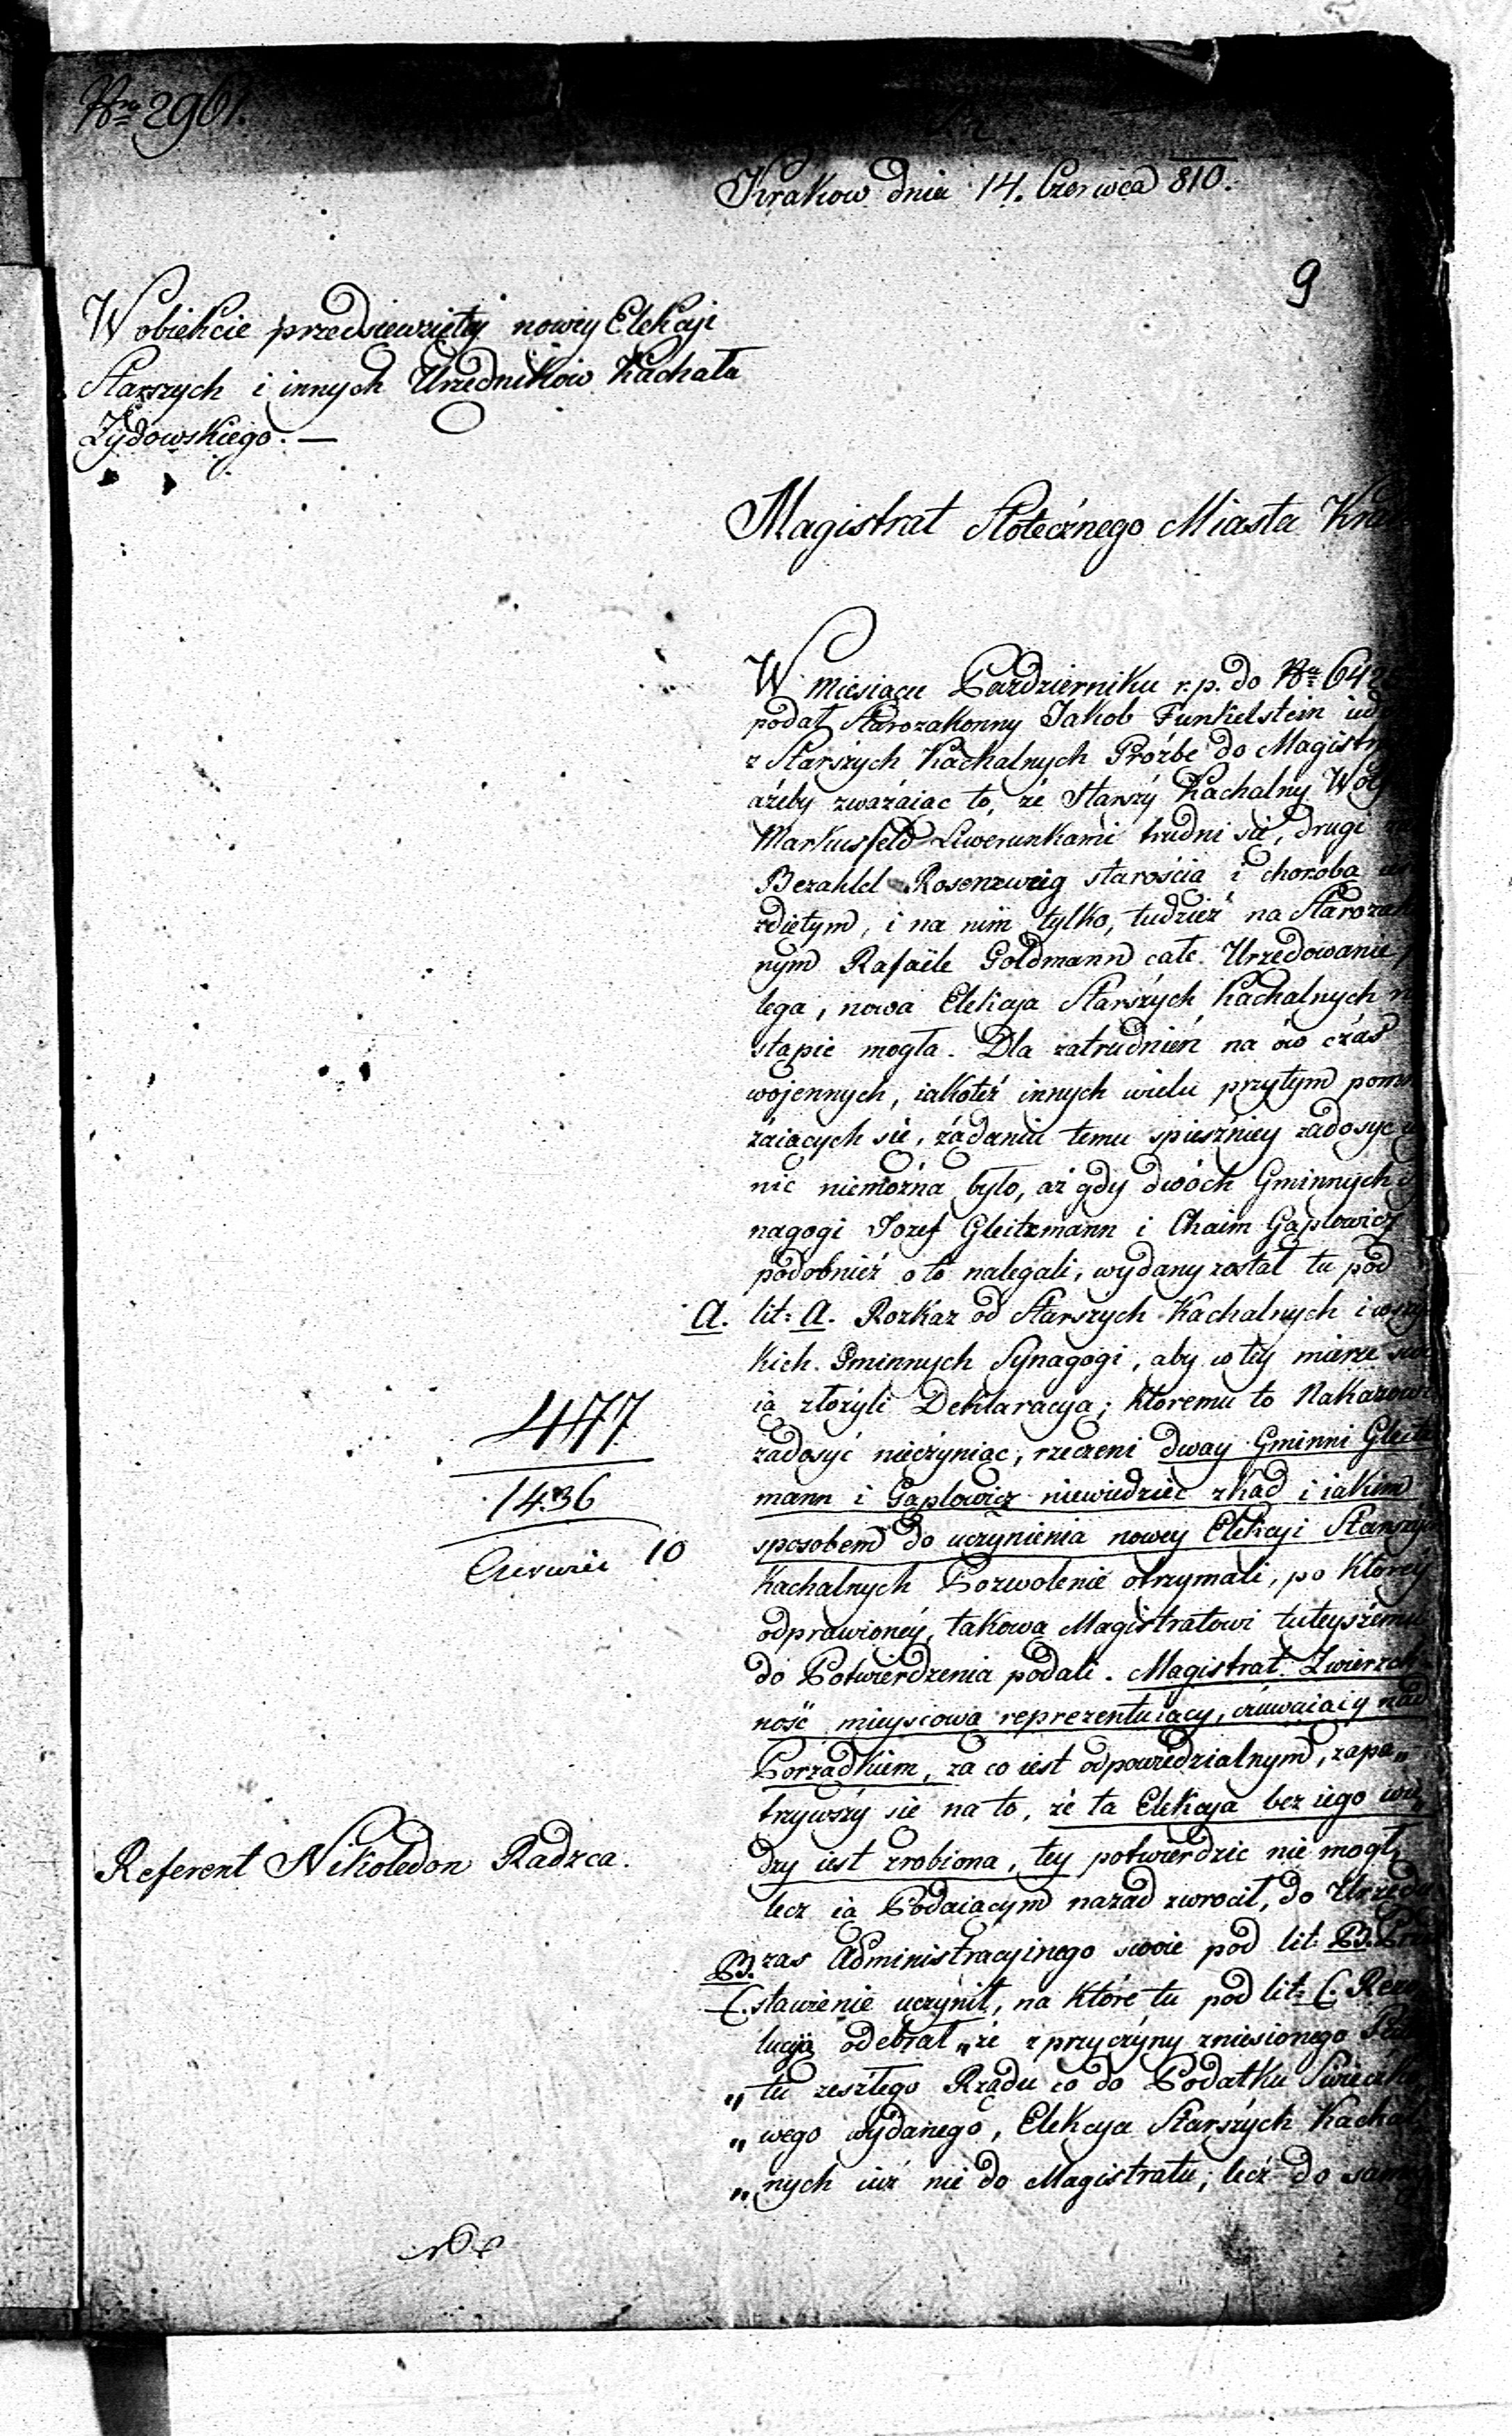 Nro 2961.
Krakow dnia 14. Czerwca 810.
9
W obiekcie przedsiewziętey nowey Elekcji
Starszych i innych Urzedników Kachała
Żydowskiego. —
Magistrat Stołecznego Miasta
W miesiącu Pazdzierniku r. p. do Nro
podał Starozakonny Jakob Funkelstein
z Starszych Kachalnych Proźbe do
ażeby zważaiac to, że Starszy Kachalny
Markusfeld Liwerunkami trudni sie, drugi
Bezahlel Rosenzweig starościa i choroba
zdiętym, i na nim tylko, tudzież na
nym Rafaële Goldmann całe Urzedowanie
lega, nowa Elekcja Starszych Kachalnych
stąpić mogła. Dla zatrudnień na ów czas
wojennych, iakoteż innych wielu przytym
żaiących sie, żądaniu temu spieszniey zadosyć
nić niemożna było, aż gdy dwóch Gminnych
nagogi Jozef Gleitzmann i Chaim Gaplowicz
podobnież o to nalegali, wydany został tu pod
A. lit: A. Rozkaz od Starszych Kachalnych i
kich Gminnych Synagogi, aby w tey mierze
ią złożyli Deklaracyą; ktoremu to
477
zadosyć nieczyniąc, rzeczeni dway Gminni
1436
mann i Gaplowicz niewiedziec zkąd i iakim
Czerwiec 10
sposobem do uczynienia nowey Elekcyi
Kachalnych Pozwolenie otrzymali, po ktorey
odprawioney, takową Magistratowi tuteyszemu
do Potwierdzenia podali. Magistrat
ność mieyscową reprezentuiący, czuwaiący nad
Porządkiem, za co iest odpowiedzialnym, zapa„
trzywszy sie na to, że ta Elekcya bez iego wie„
Referent Nikoledon Radzca.
dzy iest zrobiona, tey potwierdzic nie mogł,
lecz ią Podaiącym nazad zwrocił, do
B. zas Administracyinego swoie pod lit: B.
C. stawienie uczynił, na które tu pod lit: C.
lucyą odebrał „że z przyczyny zniesionego
„tu zeszłego Rządu co do Podatku
„wego wydanego, Elekcya Starszych
„nych iuż nie do Magistratu, lecz do